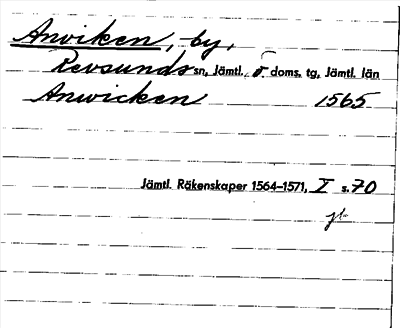 Anviken, by,
Revsunds sn, Jämtl. ö doms. tg, Jämtl. län
Anwicken 1565
Jämtl. Räkenskaper 1564–1571, I s. 70